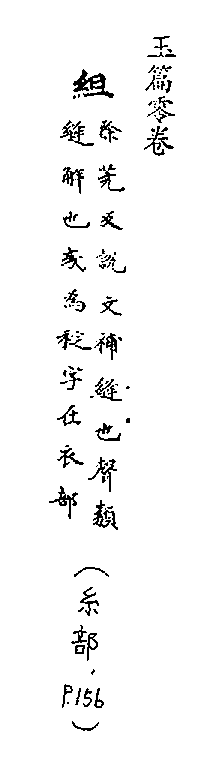 玉篇零卷
組
除莧反說文補縫也聲類
縫解也或為䘺字在衣部
(糸部，P.156)